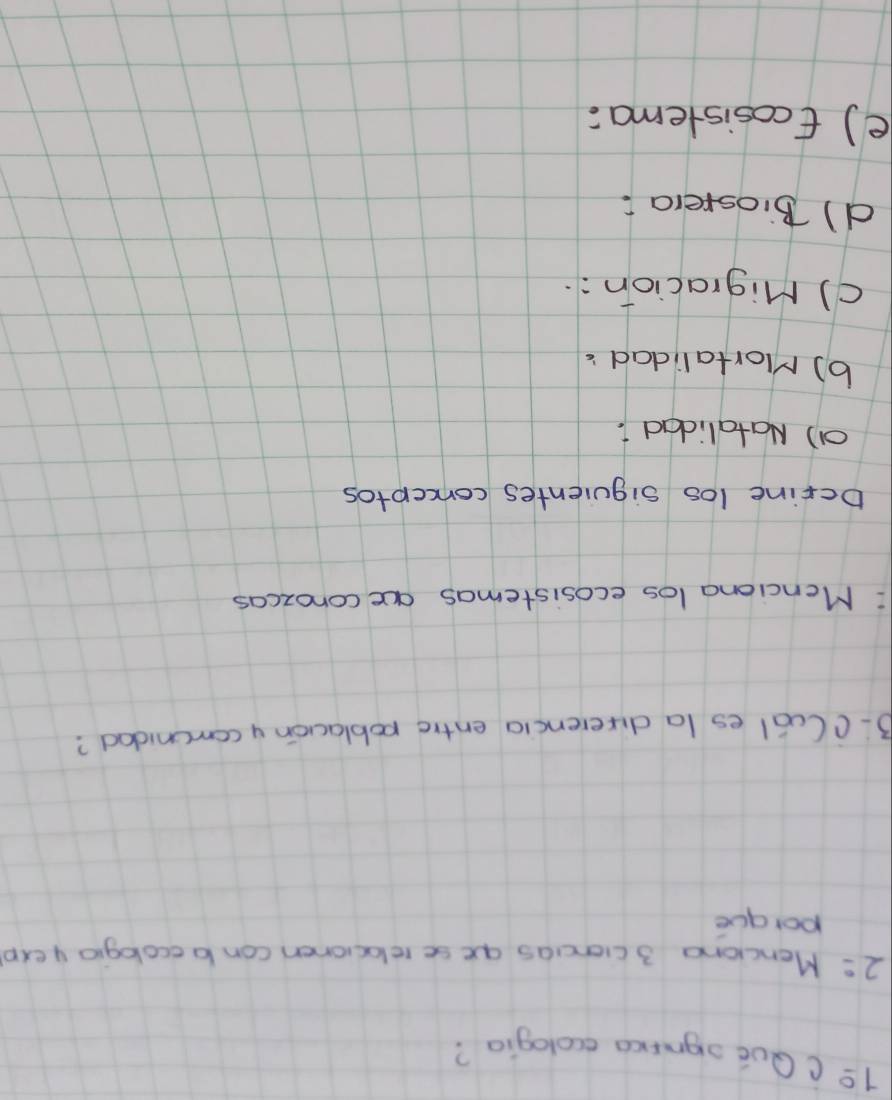 1º ¿Qué significa ecologia?
2= Menciona 3 ciencias que se relacionen con la ecologia y expl
porqué
3- ¿Cuál es la diferencia entre población y comunidad?
= Menciona los ecosistemas que conozcas
Define los siguientes conceptos
a) Natalidad:
b) Mortalidad:
c) Migración:
d) Biosfera:
e) Ecosistema: